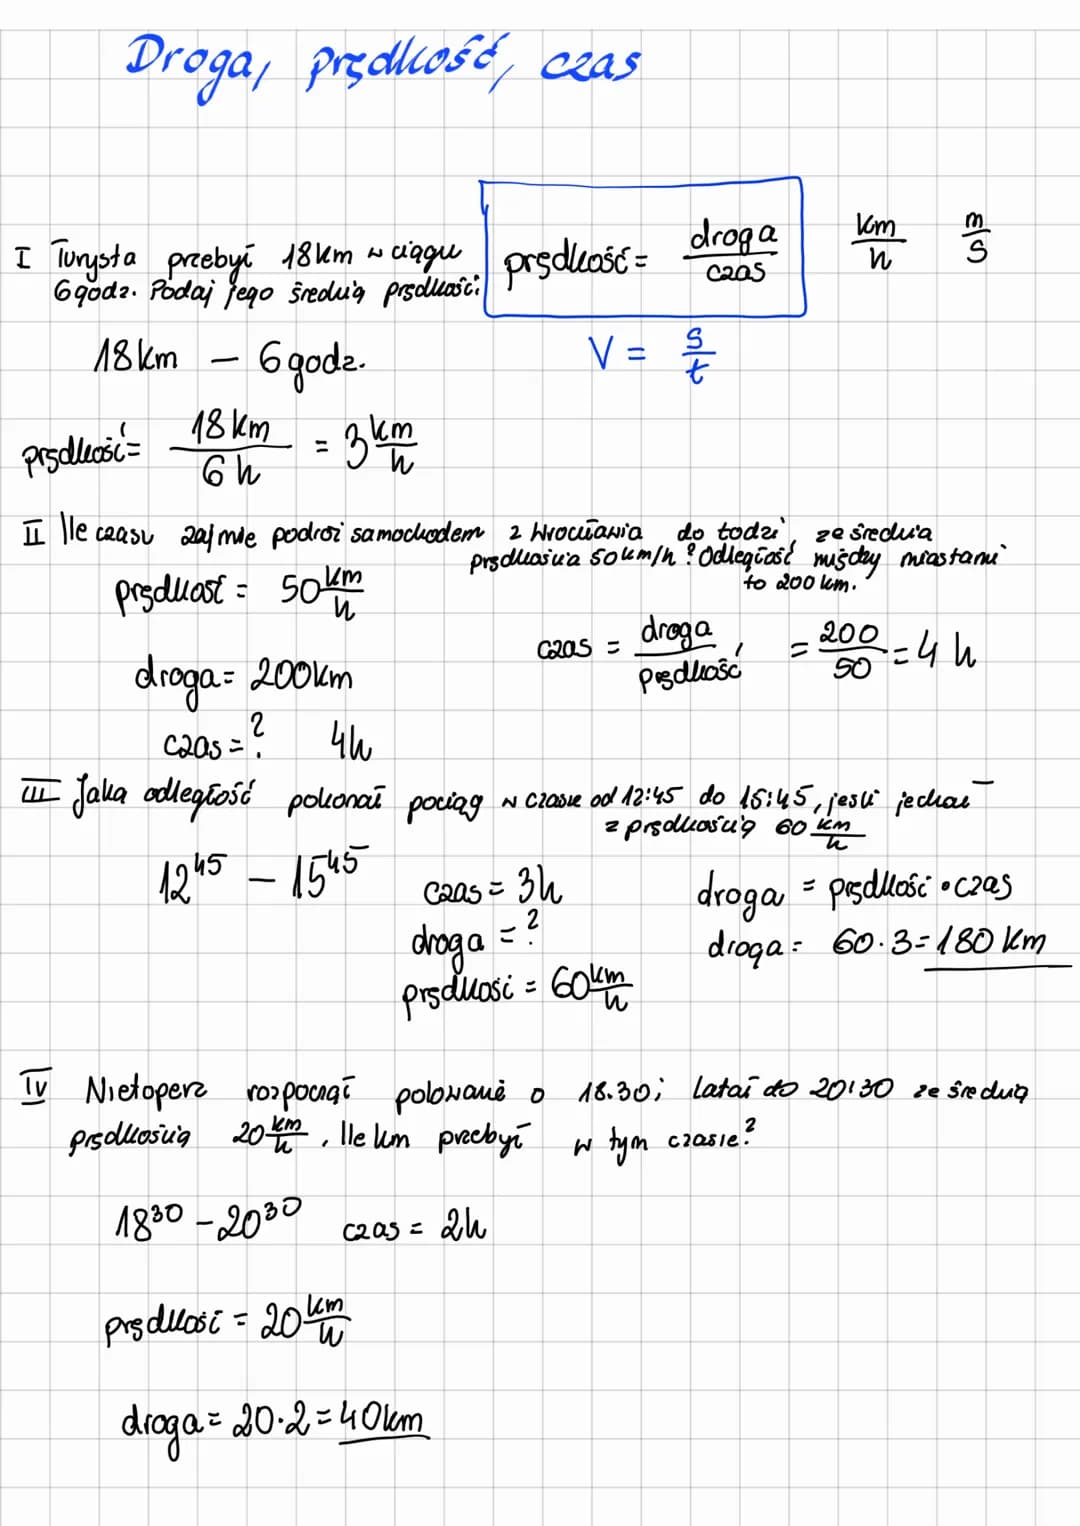 Droga, prędkość, czas
prędkość = droga / czas
km/h m/s
V = s/t
I Turysta przebył 18km w ciągu
6godz. Podaj jego średnią prędkość:
18km – 6godz.
prędkość = 18km / 6h = 3 km/h
II Ile czasu zajmie podróż samochodem z Wrocławia do Łodzi, ze średnią
prędkością 50km/h? Odległość między miastami
to 200km.
prędkość = 50 km/h
czas = droga / prędkość = 200/50 = 4h
droga = 200km
czas = ? 4h
III Jaka odległość pokonał pociąg w czasie od 12:45 do 15:45, jeśli jechał
z prędkością 60 km/h
12⁴⁵ – 15⁴⁵
czas = 3h
droga = prędkość · czas
droga = ?
droga = 60·3 = 180 km
prędkość = 60 km/h
IV Nietoperz rozpoczął polowanie o 18.30; Latał do 20:30 ze średnią
prędkością 20 km/h, Ile km przebył w tym czasie?
18³⁰ – 20³⁰ czas = 2h
prędkość = 20 km/h
droga = 20·2 = 40km